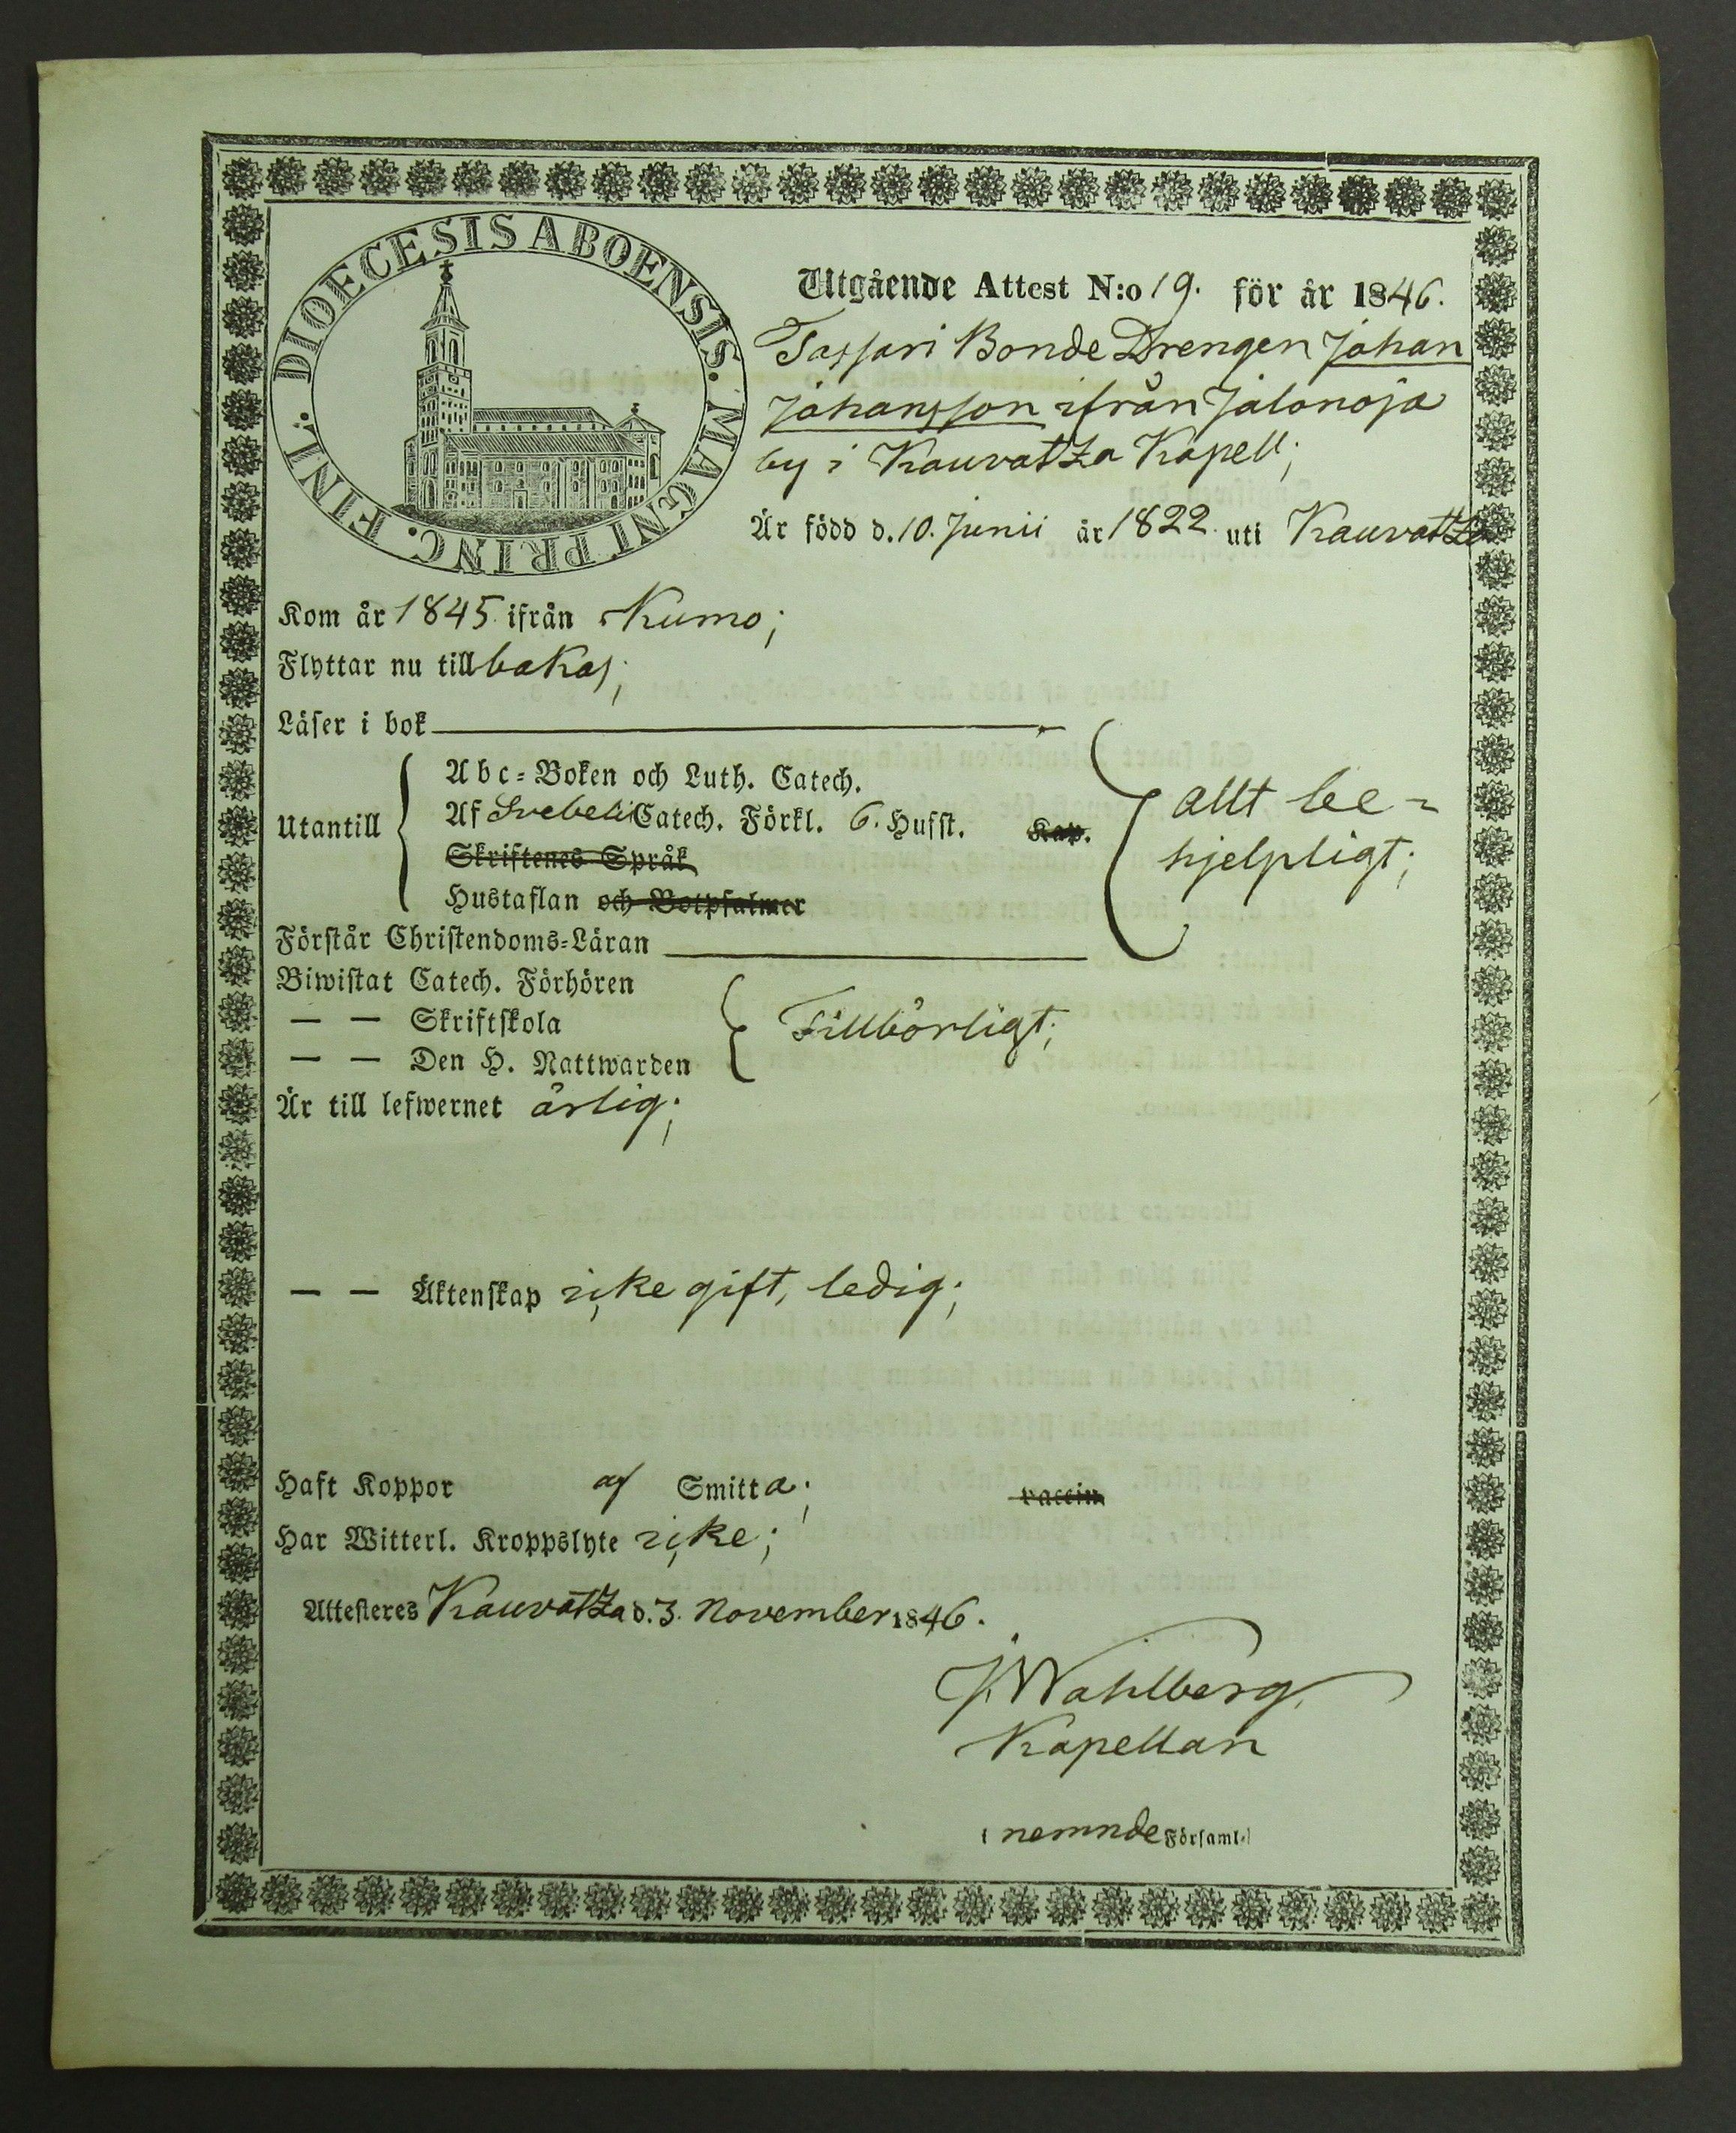 DIOECESIS ABOENSIS. MAGNI PRINC. FINL.
Utgående Attest N:o 19. för år 1846.
Tassari Bonde Drengen Johan
Johansson ifrån Jalonoja
by i Kauvatza Kapell;
Är född d. 10. Junii år 1822 uti Kauvatza
Kom år 1845 ifrån Kumo;
Flyttar nu till bakas;
Läser i bok
Abc-Boken och Luth. Catech.
Utantill Af Svebelii Catech. Förkl. 6. Hufst. Kap.
Skriftenes Språk
Hustaflan och Botpsalmer
allt be-
hjelpligt;
Förstår Christendoms-Läran
Biwistat Catech. Förhören
— — Skriftskola
Tillbörligt;
— — Den H. Nattwarden
Är till lefwernet ärlig;
— — Äktenskap icke gift, ledig;
Haft Koppor af Smitta; vaccin
Har Witterl. Kroppslyte icke;
Attesteres Kauvatza d. 3. November 1846.
J. Wahlberg,
Kapellan
i nemnde Församl.